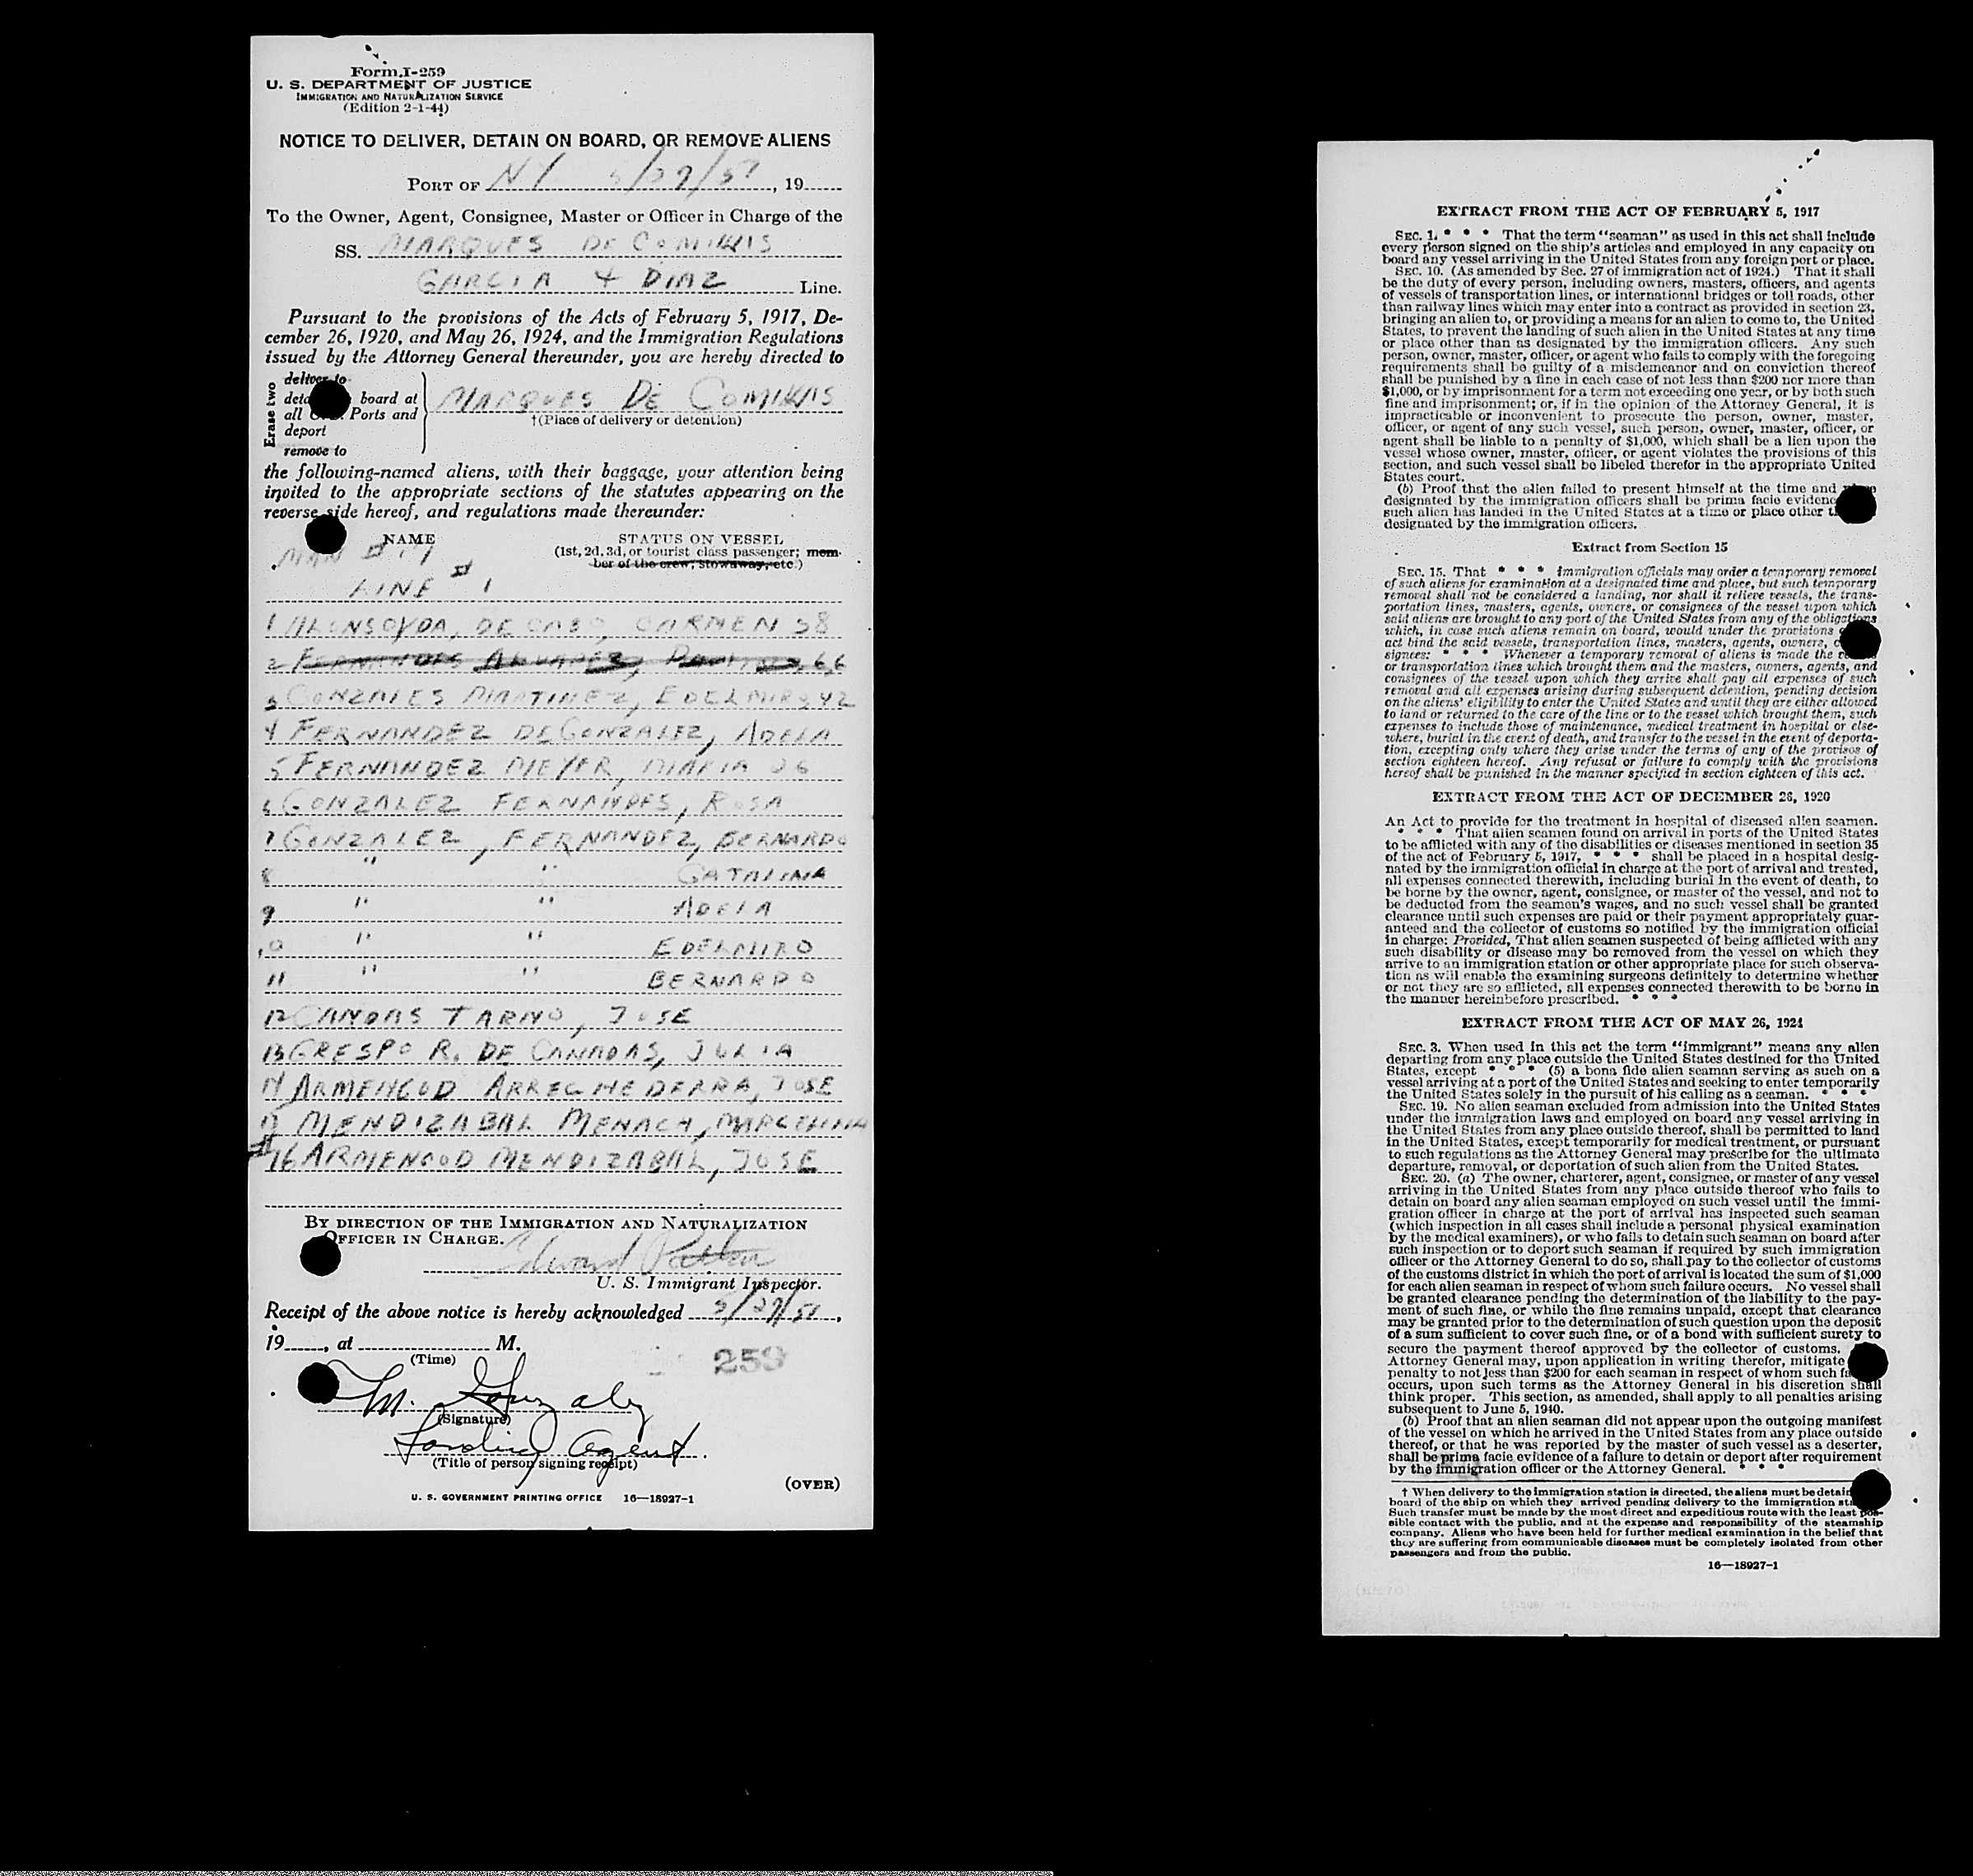 Form I-259
U. S. DEPARTMENT OF JUSTICE
IMMIGRATION AND NATURALIZATION SERVICE
(Edition 2-1-44)
NOTICE TO DELIVER, DETAIN ON BOARD, OR REMOVE ALIENS
PORT OF NY /27/51, 19
To the Owner, Agent, Consignee, Master or Officer in Charge of the
SS. MARQUES DE COMILLIS
GARCIA & DIAZ Line.
Pursuant to the provisions of the Acts of February 5, 1917, De-
cember 26, 1920, and May 26, 1924, and the Immigration Regulations
issued by the Attorney General thereunder, you are hereby directed to
Erase two
deliver to
board at
all Ports and
deport
remove to
MARQUES DE COMILLIS
†(Place of delivery or detention)
the following-named aliens, with their baggage, your attention being
invited to the appropriate sections of the statutes appearing on the
reverse side hereof, and regulations made thereunder:
NAME
STATUS ON VESSEL
(1st, 2d, 3d, or tourist class passenger; mem-
ber of the crew; stowaway, etc.)
MAN #
LINE # 1
1 DE CABO, CARMEN 58
2 66
3 GONZALES MARTINEZ, EDELMIRO 42
4 FERNANDEZ DE GONZALEZ, ADELA
5 FERNANDEZ MEYER, MARIA 26
6 GONZALEZ FERNANDES, ROSA
7 GONZALEZ, FERNANDEZ, BERNARDO
8 " " CATALINA
9 " " ADELA
10 " " EDELMIRO
11 " " BERNARDO
12 CANDAS TARNO, JOSE
13 CRESPO R. DE CANADAS, JULIA
14 ARMENGOD ARREGNEDERRA, JOSE
15 MENDIZABAL MENACA, MARCELINA
#16 ARMENGOD MENDIZABAL, JOSE
BY DIRECTION OF THE IMMIGRATION AND NATURALIZATION
OFFICER IN CHARGE.
Edward
U. S. Immigrant Inspector.
Receipt of the above notice is hereby acknowledged /27/51,
19, at M.
(Time)
259
M. Gonzalez
(Signature)
Landing Agent.
(Title of person signing receipt)
(OVER)
U. S. GOVERNMENT PRINTING OFFICE 16—18927-1
EXTRACT FROM THE ACT OF FEBRUARY 5, 1917
SEC. 1. * * * That the term "seaman" as used in this act shall include
every person signed on the ship's articles and employed in any capacity on
board any vessel arriving in the United States from any foreign port or place.
SEC. 10. (As amended by Sec. 27 of immigration act of 1924.) That it shall
be the duty of every person, including owners, masters, officers, and agents
of vessels of transportation lines, or international bridges or toll roads, other
than railway lines which may enter into a contract as provided in section 23,
bringing an alien to, or providing a means for an alien to come to, the United
States, to prevent the landing of such alien in the United States at any time
or place other than as designated by the immigration officers. Any such
person, owner, master, officer, or agent who fails to comply with the foregoing
requirements shall be guilty of a misdemeanor and on conviction thereof
shall be punished by a fine in each case of not less than $200 nor more than
$1,000, or by imprisonment for a term not exceeding one year, or by both such
fine and imprisonment; or, if in the opinion of the Attorney General, it is
impracticable or inconvenient to prosecute the person, owner, master,
officer, or agent of any such vessel, such person, owner, master, officer, or
agent shall be liable to a penalty of $1,000, which shall be a lien upon the
vessel whose owner, master, officer, or agent violates the provisions of this
section, and such vessel shall be libeled therefor in the appropriate United
States court.
(b) Proof that the alien failed to present himself at the time and
designated by the immigration officers shall be prima facie evidence
such alien has landed in the United States at a time or place other
designated by the immigration officers.
Extract from Section 15
SEC. 15. That * * * immigration officials may order a temporary removal
of such aliens for examination at a designated time and place, but such temporary
removal shall not be considered a landing, nor shall it relieve vessels, the trans-
portation lines, masters, agents, owners, or consignees of the vessel upon which
said aliens are brought to any port of the United States from any of the obligations
which, in case such aliens remain on board, would under the provisions
act bind the said vessels, transportation lines, masters, agents, owners,
signees: * * * Whenever a temporary removal of aliens is made the
or transportation lines which brought them and the masters, owners, agents, and
consignees of the vessel upon which they arrive shall pay all expenses of such
removal and all expenses arising during subsequent detention, pending decision
on the aliens' eligibility to enter the United States and until they are either allowed
to land or returned to the care of the line or to the vessel which brought them, such
expenses to include those of maintenance, medical treatment in hospital or else-
where, burial in the event of death, and transfer to the vessel in the event of deporta-
tion, excepting only where they arise under the terms of any of the provisos of
section eighteen hereof. Any refusal or failure to comply with the provisions
hereof shall be punished in the manner specified in section eighteen of this act.
EXTRACT FROM THE ACT OF DECEMBER 26, 1920
An Act to provide for the treatment in hospital of diseased alien seamen.
* * * That alien seamen found on arrival in ports of the United States
to be afflicted with any of the disabilities or diseases mentioned in section 35
of the act of February 5, 1917, * * * shall be placed in a hospital desig-
nated by the immigration official in charge at the port of arrival and treated,
all expenses connected therewith, including burial in the event of death, to
be borne by the owner, agent, consignee, or master of the vessel, and not to
be deducted from the seamen's wages, and no such vessel shall be granted
clearance until such expenses are paid or their payment appropriately guar-
anteed and the collector of customs so notified by the immigration official
in charge: Provided, That alien seamen suspected of being afflicted with any
such disability or disease may be removed from the vessel on which they
arrive to an immigration station or other appropriate place for such observa-
tion as will enable the examining surgeons definitely to determine whether
or not they are so afflicted, all expenses connected therewith to be borne in
the manner hereinbefore prescribed. * * *
EXTRACT FROM THE ACT OF MAY 26, 1924
SEC. 3. When used in this act the term "immigrant" means any alien
departing from any place outside the United States destined for the United
States, except * * * (5) a bona fide alien seaman serving as such on a
vessel arriving at a port of the United States and seeking to enter temporarily
the United States solely in the pursuit of his calling as a seaman. * * *
SEC. 19. No alien seaman excluded from admission into the United States
under the immigration laws and employed on board any vessel arriving in
the United States from any place outside thereof, shall be permitted to land
in the United States, except temporarily for medical treatment, or pursuant
to such regulations as the Attorney General may prescribe for the ultimate
departure, removal, or deportation of such alien from the United States.
SEC. 20. (a) The owner, charterer, agent, consignee, or master of any vessel
arriving in the United States from any place outside thereof who fails to
detain on board any alien seaman employed on such vessel until the immi-
gration officer in charge at the port of arrival has inspected such seaman
(which inspection in all cases shall include a personal physical examination
by the medical examiners), or who fails to detain such seaman on board after
such inspection or to deport such seaman if required by such immigration
officer or the Attorney General to do so, shall pay to the collector of customs
of the customs district in which the port of arrival is located the sum of $1,000
for each alien seaman in respect of whom such failure occurs. No vessel shall
be granted clearance pending the determination of the liability to the pay-
ment of such fine, or while the fine remains unpaid, except that clearance
may be granted prior to the determination of such question upon the deposit
of a sum sufficient to cover such fine, or of a bond with sufficient surety to
secure the payment thereof approved by the collector of customs.
Attorney General may, upon application in writing therefor, mitigate
penalty to not less than $200 for each seaman in respect of whom such
occurs, upon such terms as the Attorney General in his discretion shall
think proper. This section, as amended, shall apply to all penalties arising
subsequent to June 5, 1940.
(b) Proof that an alien seaman did not appear upon the outgoing manifest
of the vessel on which he arrived in the United States from any place outside
thereof, or that he was reported by the master of such vessel as a deserter,
shall be prima facie evidence of a failure to detain or deport after requirement
by the immigration officer or the Attorney General. * * *
† When delivery to the immigration station is directed, the aliens must be
board of the ship on which they arrived pending delivery to the immigration
Such transfer must be made by the most direct and expeditious route with the least pos-
sible contact with the public, and at the expense and responsibility of the steamship
company. Aliens who have been held for further medical examination in the belief that
they are suffering from communicable diseases must be completely isolated from other
passengers and from the public.
16—18927-1